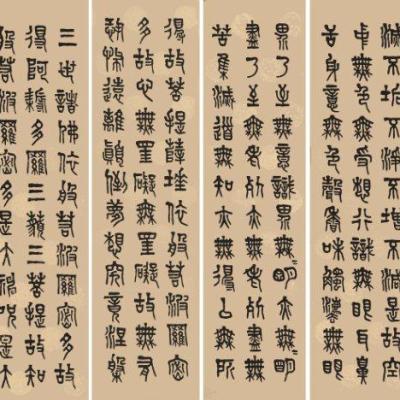 滅不垢不淨不增不減是故空
中無色無受想行識無眼耳鼻
舌身意無色聲香味觸法無眼
界乃至無意識界無〻明亦無無明
盡乃至無老死亦無老死盡無
苦集滅道無智亦無得以無所
得故菩提薩埵依般若波羅蜜
多故心無罣礙無罣礙故無有
恐怖遠離顛倒夢想究竟涅槃
三世諸佛依般若波羅蜜多故
得阿耨多羅三藐三菩提故知
般若波羅蜜多是大神咒是大